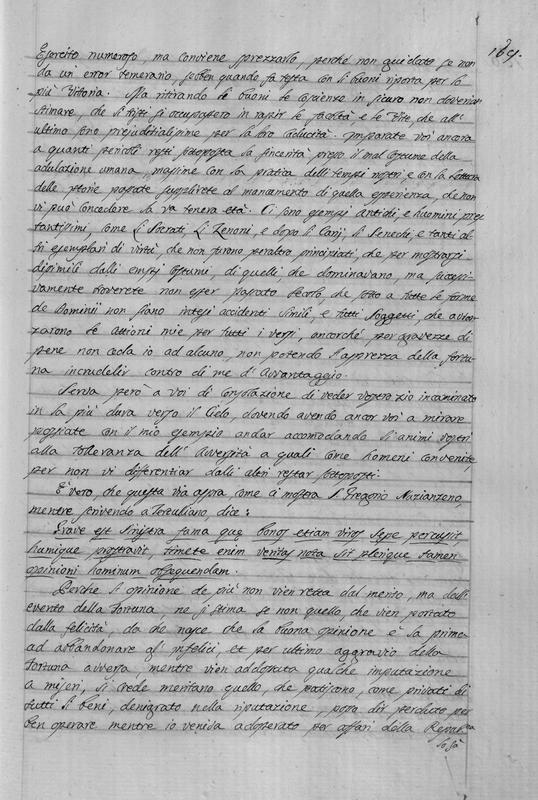 169.
Esercito numeroso, ma conviene sprezzarlo, perché non guidato se non
da un error temerario, seben quando fa testa con li buoni riporta per lo
più Vittoria. Ma ritirando li buoni le coscienze in sicuro non doveriano
stimare, che li tristi si occupassero in rapir le facoltà e le Vite, che all'
ultimo sono prejuditialissime per la loro caducità. Imparate voi ancora
a quanti pericoli resti sottoposta la sincerità presso il mal costume della
adulatione umana, massime con la pratica delli tempi nostri, e con la Lettura
delle storie passate supplirete al mancamento di quella esperienza, che non
vi può concedere la vostra tenera età. Ci sono esempi antichi, e huomini pres
tantissimi, come li Socrati, li Zenoni, e dopo li Canij, li Senechi, e tanti al-
tri esemplari di virtù, che non furono peraltro principiati, che per mostrarsi
dissimili dalli empij costumi, di quelli, che dominavano, ma successi-
vamente troverete non esser passato secolo, che sotto a tutte le forme
de Dominii non siano intesi accidenti simili, e tutti soggetti, che avan-
zarono le attioni mie per tutti i versi, ancorché per gravezze di
pene non ceda io ad alcuno, non potendo l'asprezza della fortu-
na incrudelir contro di me d'Avvantaggio.
Serva però a voi di Consolazione di veder vostro zio incaminato
in la più dura verso il Cielo, dovendo avendo ancor voi a mirare
procurate con il mio esempio andar accomodando li animi vostri
alla tolleranza dell' Avversità a quali come homeni convenite,
per non vi differentiar dalli altri restar sottoposti.
E' vero, che questa via aspra, come ci mostra S. Gregorio Nazianzeno,
mentre scrivendo a Tertuliano dice:
Grave est sinistra fama quae bonos etiam viros sepe percussit
humique prostravit timete enim veritas nota sit plerique tamen
opinioni hominum obsequendam.
Perche l'opinione de più non vien retta dal merito, ma dall'
evento della fortuna, ne si stima se non quello, che vien portato
dalla felicità, da che nasce che la buona opinione è la prima
ad abbandonare gl' infelici, et per ultimo aggravio della
fortuna avversa, mentre vien addossata qualche imputazione
a miseri, si crede meritano quello, che patiscono, come privati di
tutti li beni, denigrato nella riputazione, possa dir perduto per
ben operare mentre io veniva adoperato per affari della